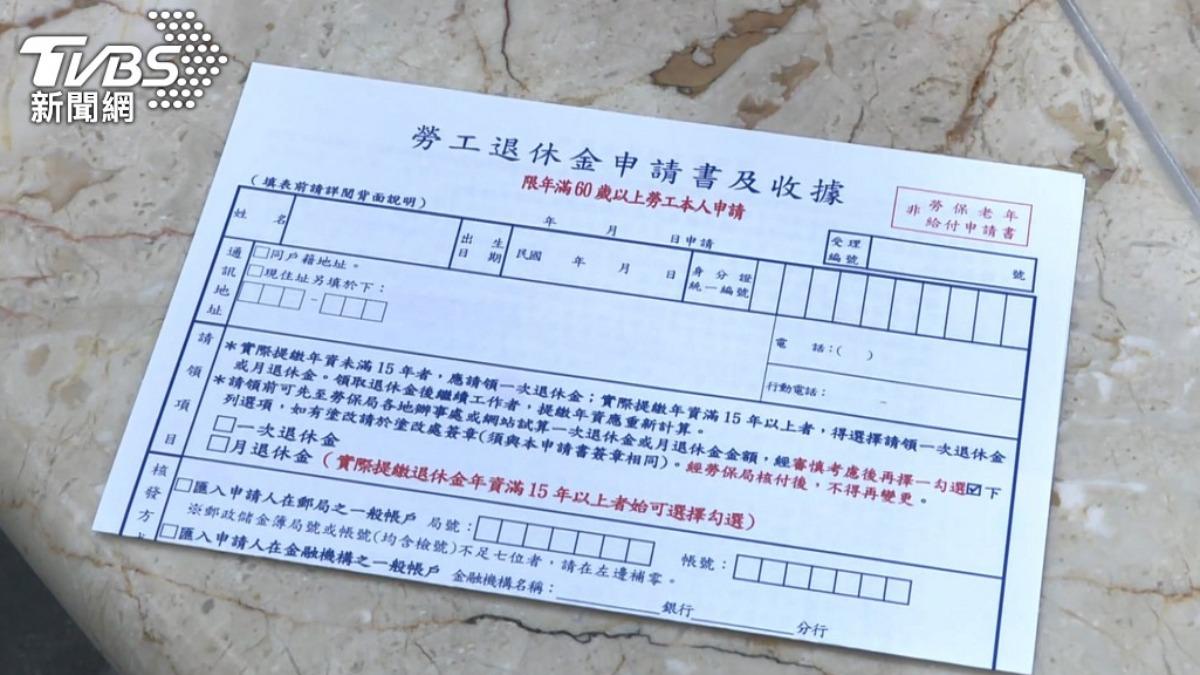 TVBS
新聞網
勞工退休金申請書及收據
限年滿60歲以上勞工本人申請
(填表前請詳閱背面說明)
年 月 日申請
勞保老年
非 給付申請書
受理
編號
號
姓名
出生
日期
民國 年 月 日
身分證
統一編號
通訊地址
□同戶籍地址。
□現住址另填於下：
電 話：( )
行動電話：
請領項目
*實際提繳年資未滿15年者，應請領一次退休金；實際提繳年資滿15年以上者，得選擇請領一次退休金
或月退休金。領取退休金後繼續工作者，提繳年資應重新計算。
*請領前可先至勞保局各地辦事處或網站試算一次退休金或月退休金金額，經審慎考慮後再擇一勾選☑下
列選項，如有塗改請於塗改處簽章(須與本申請書簽章相同)。經勞保局核付後，不得再變更。
□一次退休金
□月退休金(實際提繳退休金年資滿15年以上者始可選擇勾選)
核發方
□匯入申請人在郵局之一般帳戶 局號： 帳號：
※郵政儲金簿局號或帳號(均含檢號)不足七位者，請在左邊補零。
□匯入申請人在金融機構之一般帳戶 金融機構名稱： 銀行 分行